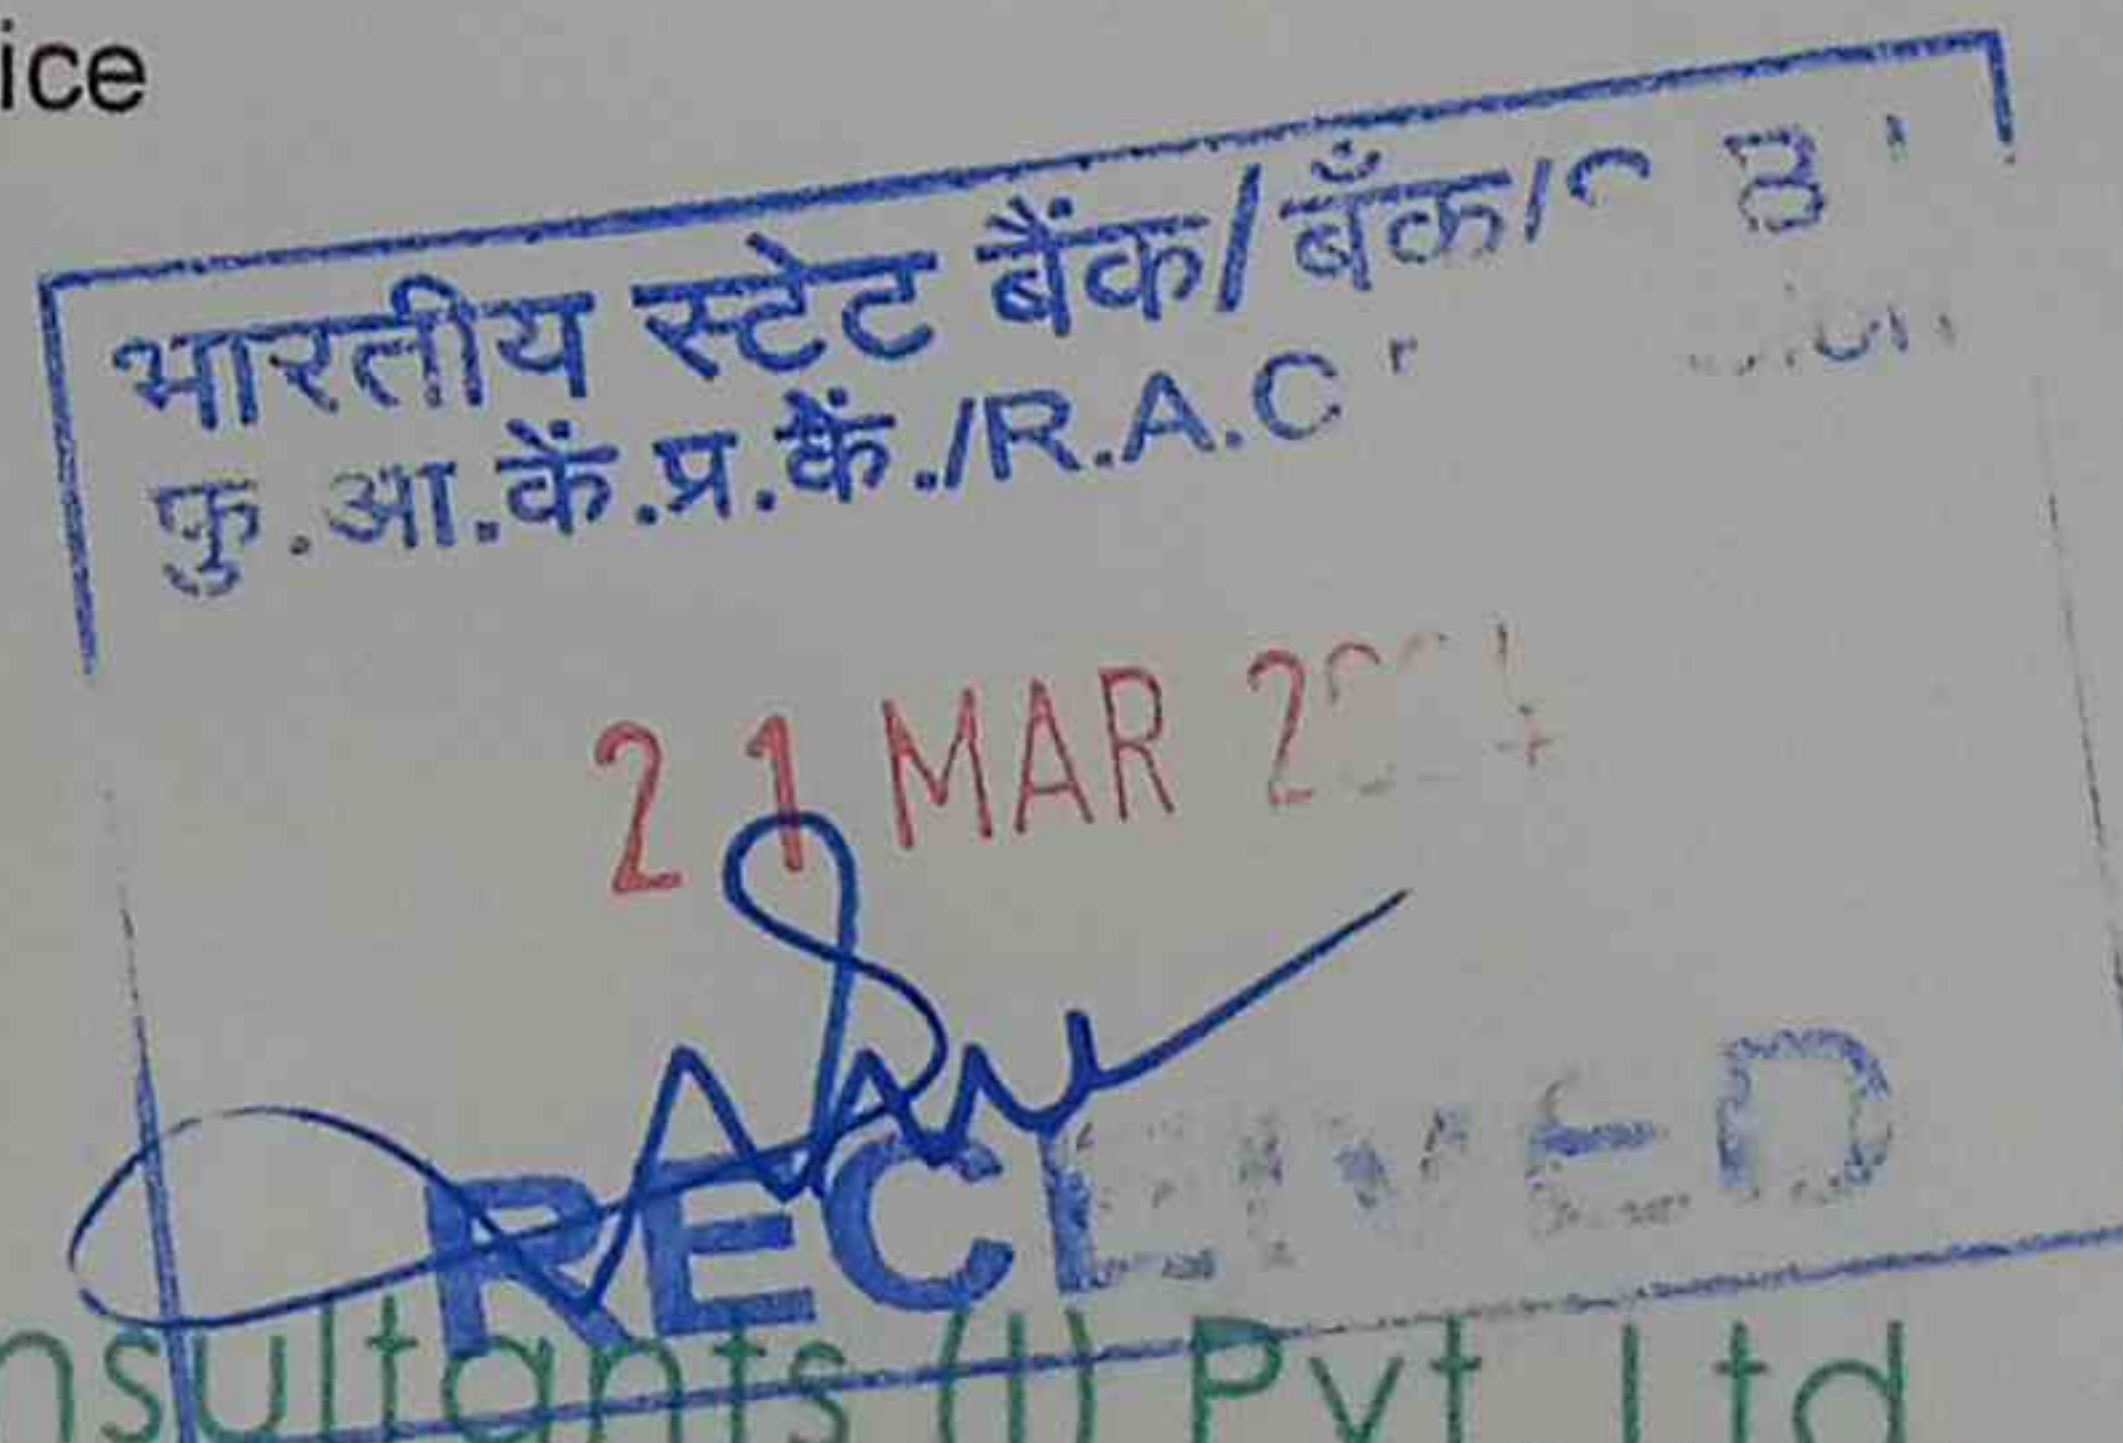 ice
भारतीय स्टेट बैंक/बँक/
कु.आ.कें.प्र.कें./R.A.C
21 MAR
RECEIVED
nsultants (I) Pvt. Ltd